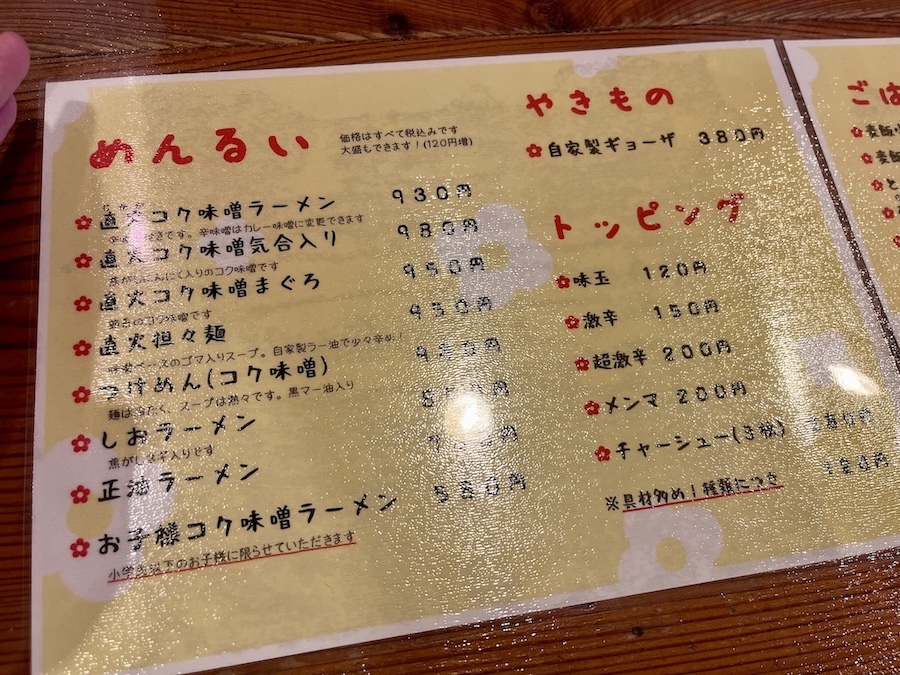 めんるい
価格はすべて税込みです
大盛もできます！(120円増)
直火コク味噌ラーメン 930円
です。辛味噌はカレー味噌に変更できます
直火コク味噌気合入り 980円
焦がしにんにく入りのコク味噌です
直火コク味噌まぐろ 950円
のコク味噌です
直火担々麺 950円
ベースのゴマ入りスープ。自家製ラー油で少々辛め！
つけめん(コク味噌)
麺は冷たく、スープは熱々です。黒マー油入り
しおラーメン
焦がしネギ入りです
正油ラーメン
お子様コク味噌ラーメン 580円
小学生以下のお子様に限らせていただきます
やきもの
自家製ギョーザ 380円
トッピング
味玉 120円
激辛 150円
超激辛 200円
メンマ 200円
チャーシュー(3枚)
※具材多め1種類につき 120円
ごは
麦飯
麦飯
と